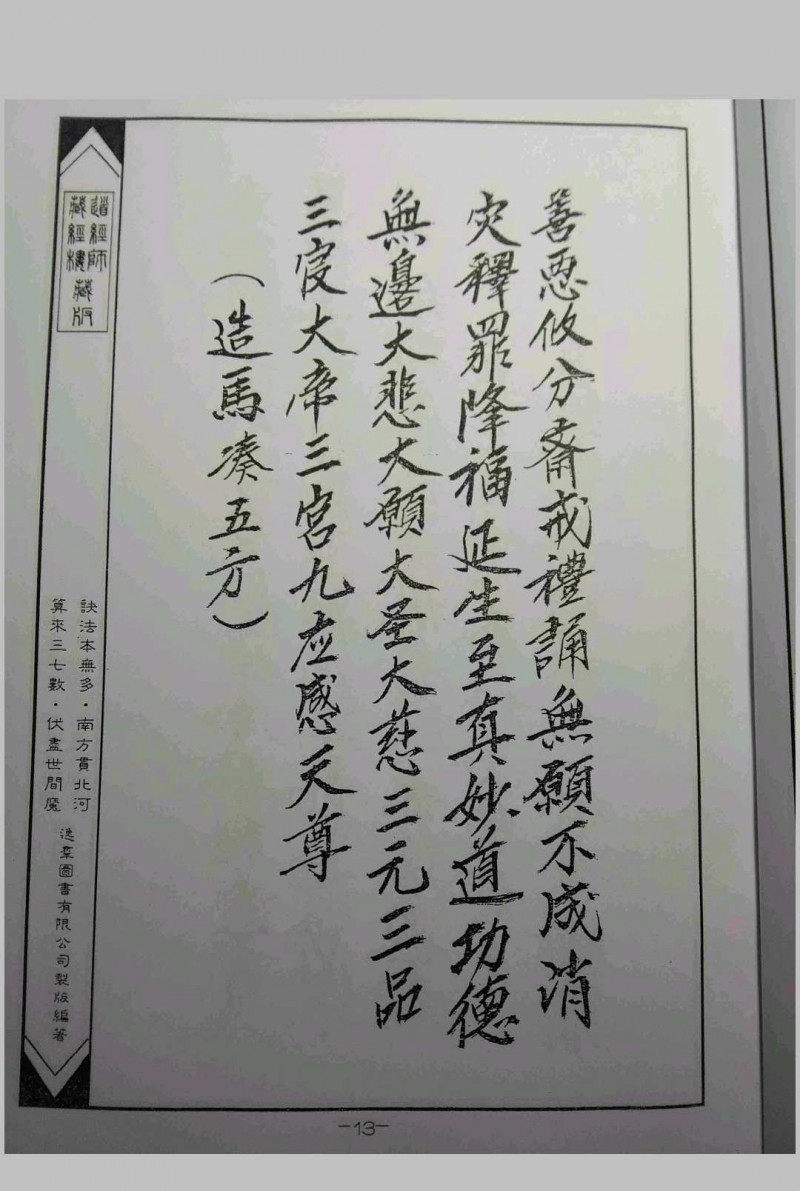 善恶攸分斋戒禮誦無願不成消
灾釋罪降福延生至真妙道功德
無邊大悲大願大圣大慈三元三品
三官大帝三宮九应感天尊
（造馬凑五方）
道經師
藏經樓
藏版
訣法本無多·南方貫北河
算來三七數·伏盡世間魔
逸羣圖書有限公司製版編著
-13-